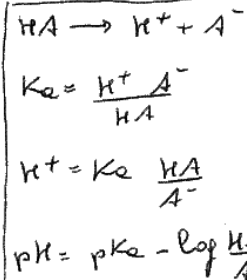 HA → H⁺ + A⁻
Ka = H⁺ A⁻ / HA
H⁺ = Ka HA / A⁻
pH = pKa - log H